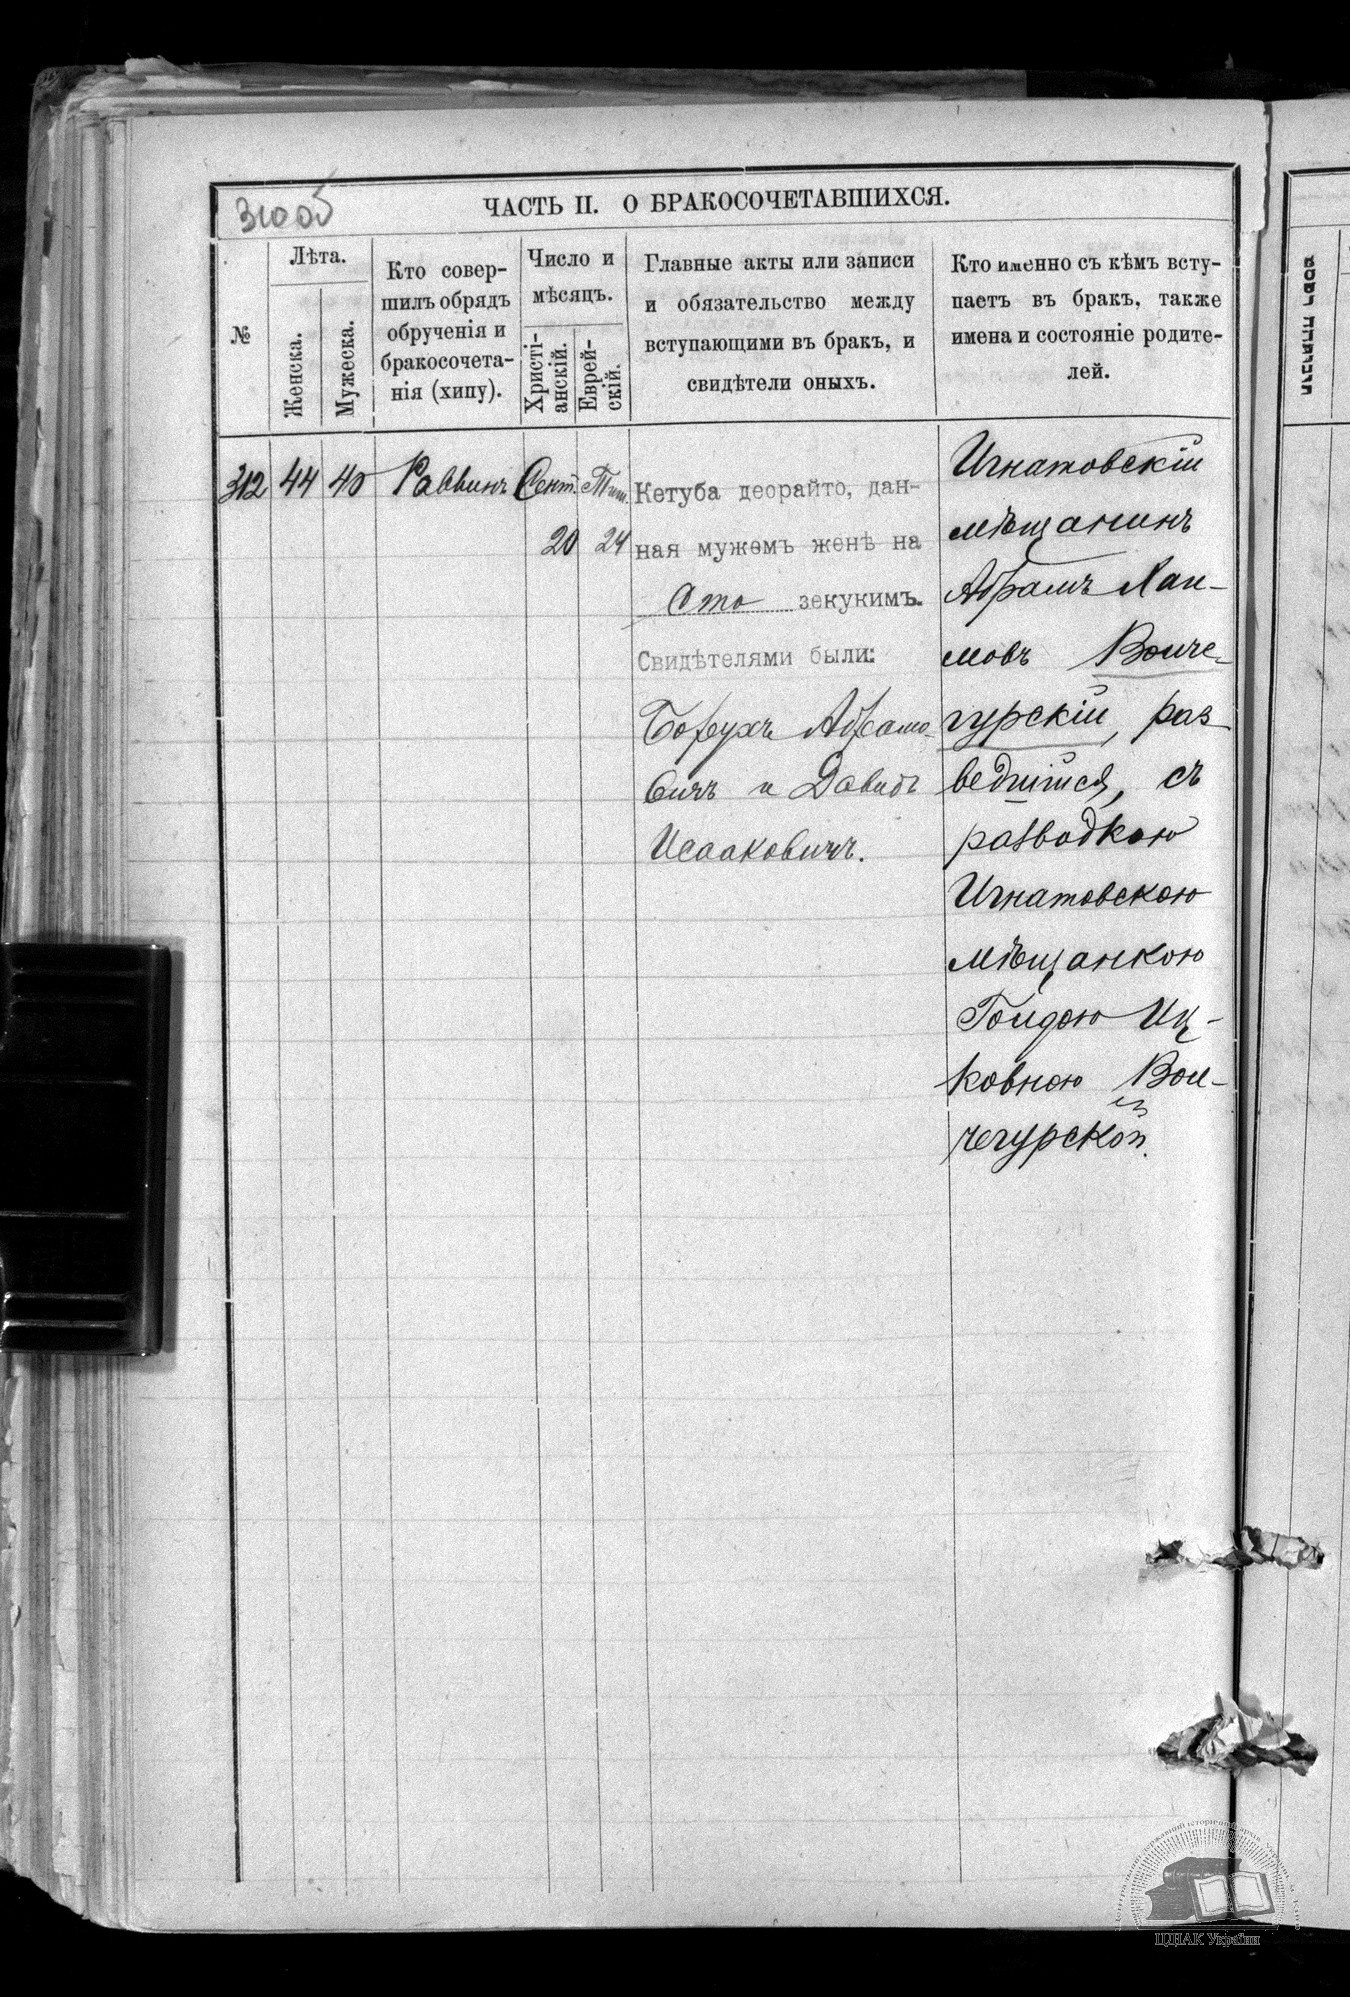 310об
ЧАСТЬ II. О БРАКОСОЧЕТАВШИХСЯ.
№
Лѣта.
Женска.
Мужеска.
Кто совер-
шилъ обрядъ
обрученія и
бракосочета-
нія (хипу).
Число и
мѣсяцъ.
Христі-
анскій.
Еврей-
скій.
Главные акты или записи
и обязательство между
вступающими въ бракъ, и
свидѣтели оныхъ.
Кто именно съ кѣмъ всту-
паетъ въ бракъ, также
имена и состояніе родите-
лей.
312
44
40
Раввинъ
Сент.
20
Тиш.
24
Кетуба деорайто, дан-
ная мужемъ женѣ на
Сто зекукимъ.
Свидѣтелями были:
Борухъ Абрамо-
вичъ и Давидъ
Исааковичъ.
Игнатовскій
мѣщанинъ
Абрамъ Хаи-
мовъ Волче-
гурскій, раз
ведшійся, съ
разводкою
Игнатовскою
мѣщанкою
Голдою Иц-
ковною Вол-
чегурской.
ЦДІАК України